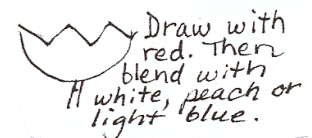 Draw with
red. Then
blend with
white, peach or
light blue.